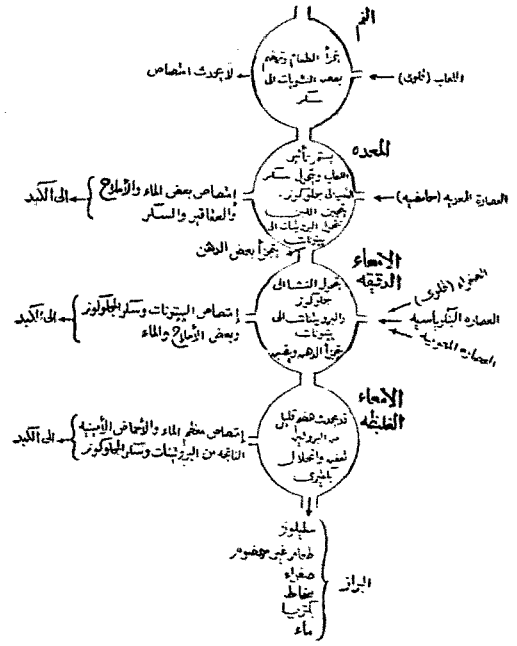 الفم
يجزأ الطعام ويهضم
بعض النشويات الى
سكر
اللعاب (قلوى)
لا يحدث امتصاص
المعده
يستمر تأثير
اللعاب ويتحول سكر
القصب الى جلوكوز.
يتجبن اللبن
تتحول البروتينات الى
ببتونات
العصارة المعديه (حامضيه)
إمتصاص بعض الماء والأملاح
والعقاقير والسكر
الى الكبد
يتجزأ بعض الدهن
الأمعاء
الدقيقه
يتحول النشا الى
جلوكوز
والبروتينات الى
ببتونات
الصفراء (قلوى)
العصاره البنكرياسيه
العصاره المعويه
إمتصاص الببتونات وسكر الجلوكوز
وبعض الأملاح والماء
الى الكبد
الأمعاء
الغليظه
قد يحدث هضم قليل
من البروتين
تعفن وانحلال
بكتيرى
إمتصاص معظم الماء والأحماض الأمينيه
الناتجه من البروتينات وسكر الجلوكوز
الى الكبد
سليلوز
طعام غير مهضوم
صفراء
مخاط
بكتريا
ماء
البراز